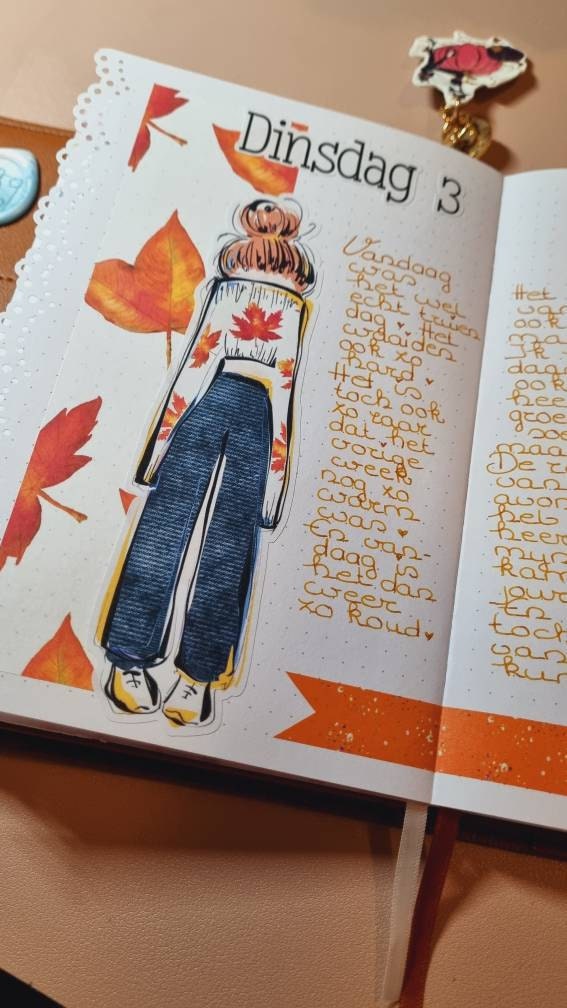 Dinsdag 3
Vandaag
was
het wel
echt truien
dag ♥ Het
waaiden
ook zo
hard ♥
Het is
toch ook
zo raar
dat ♥ het
vorige
week
nog zo
warm
was ♥
En van-
daag is
het dan
weer
zo koud ♥
Het
van
ook
ma
Ik
daa
ook
hee
groe
maa
De r
van
avon
het
heer
mijn
jour
En
toch
van